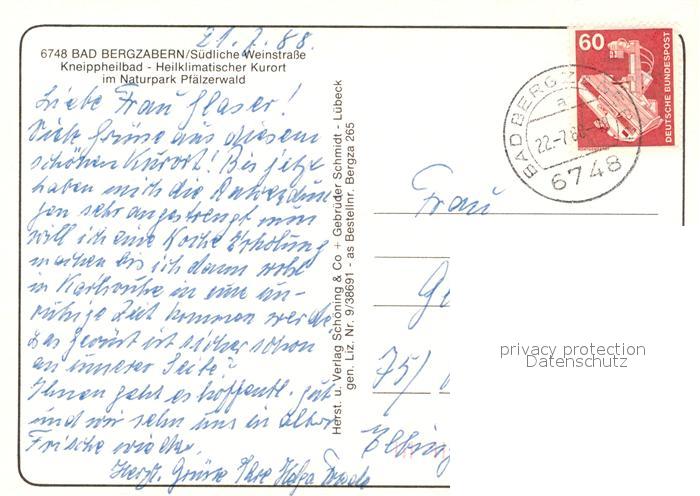 21.7.88.
6748 BAD BERGZABERN/Südliche Weinstraße
Kneippheilbad - Heilklimatischer Kurort
im Naturpark Pfälzerwald
Liebe Frau Glaser!
Viele Grüße aus diesem
schönen Kurort! Bis jetzt
haben mich die Anwendun-
gen sehr angestrengt nun
will ich eine Woche Erholung
machen bis ich dann wohl
in Karlsruhe in eine un-
ruhige Zeit kommen werde.
Das Gerüst ist sicher schon
an unserer Seite?
Ihnen geht es hoffentl. gut
und wir sehn uns in alter
Frische wieder.
Herzl. Grüße Ihre Helga
Herst. u. Verlag Schöning & Co + Gebrüder Schmidt - Lübeck
gen. Liz. Nr. 9/38691 - as Bestellnr. Bergza 265
60
DEUTSCHE BUNDESPOST
BAD BERGZ
a
22.-7.88
6748
Frau
75/
Elbing
privacy protection
Datenschutz